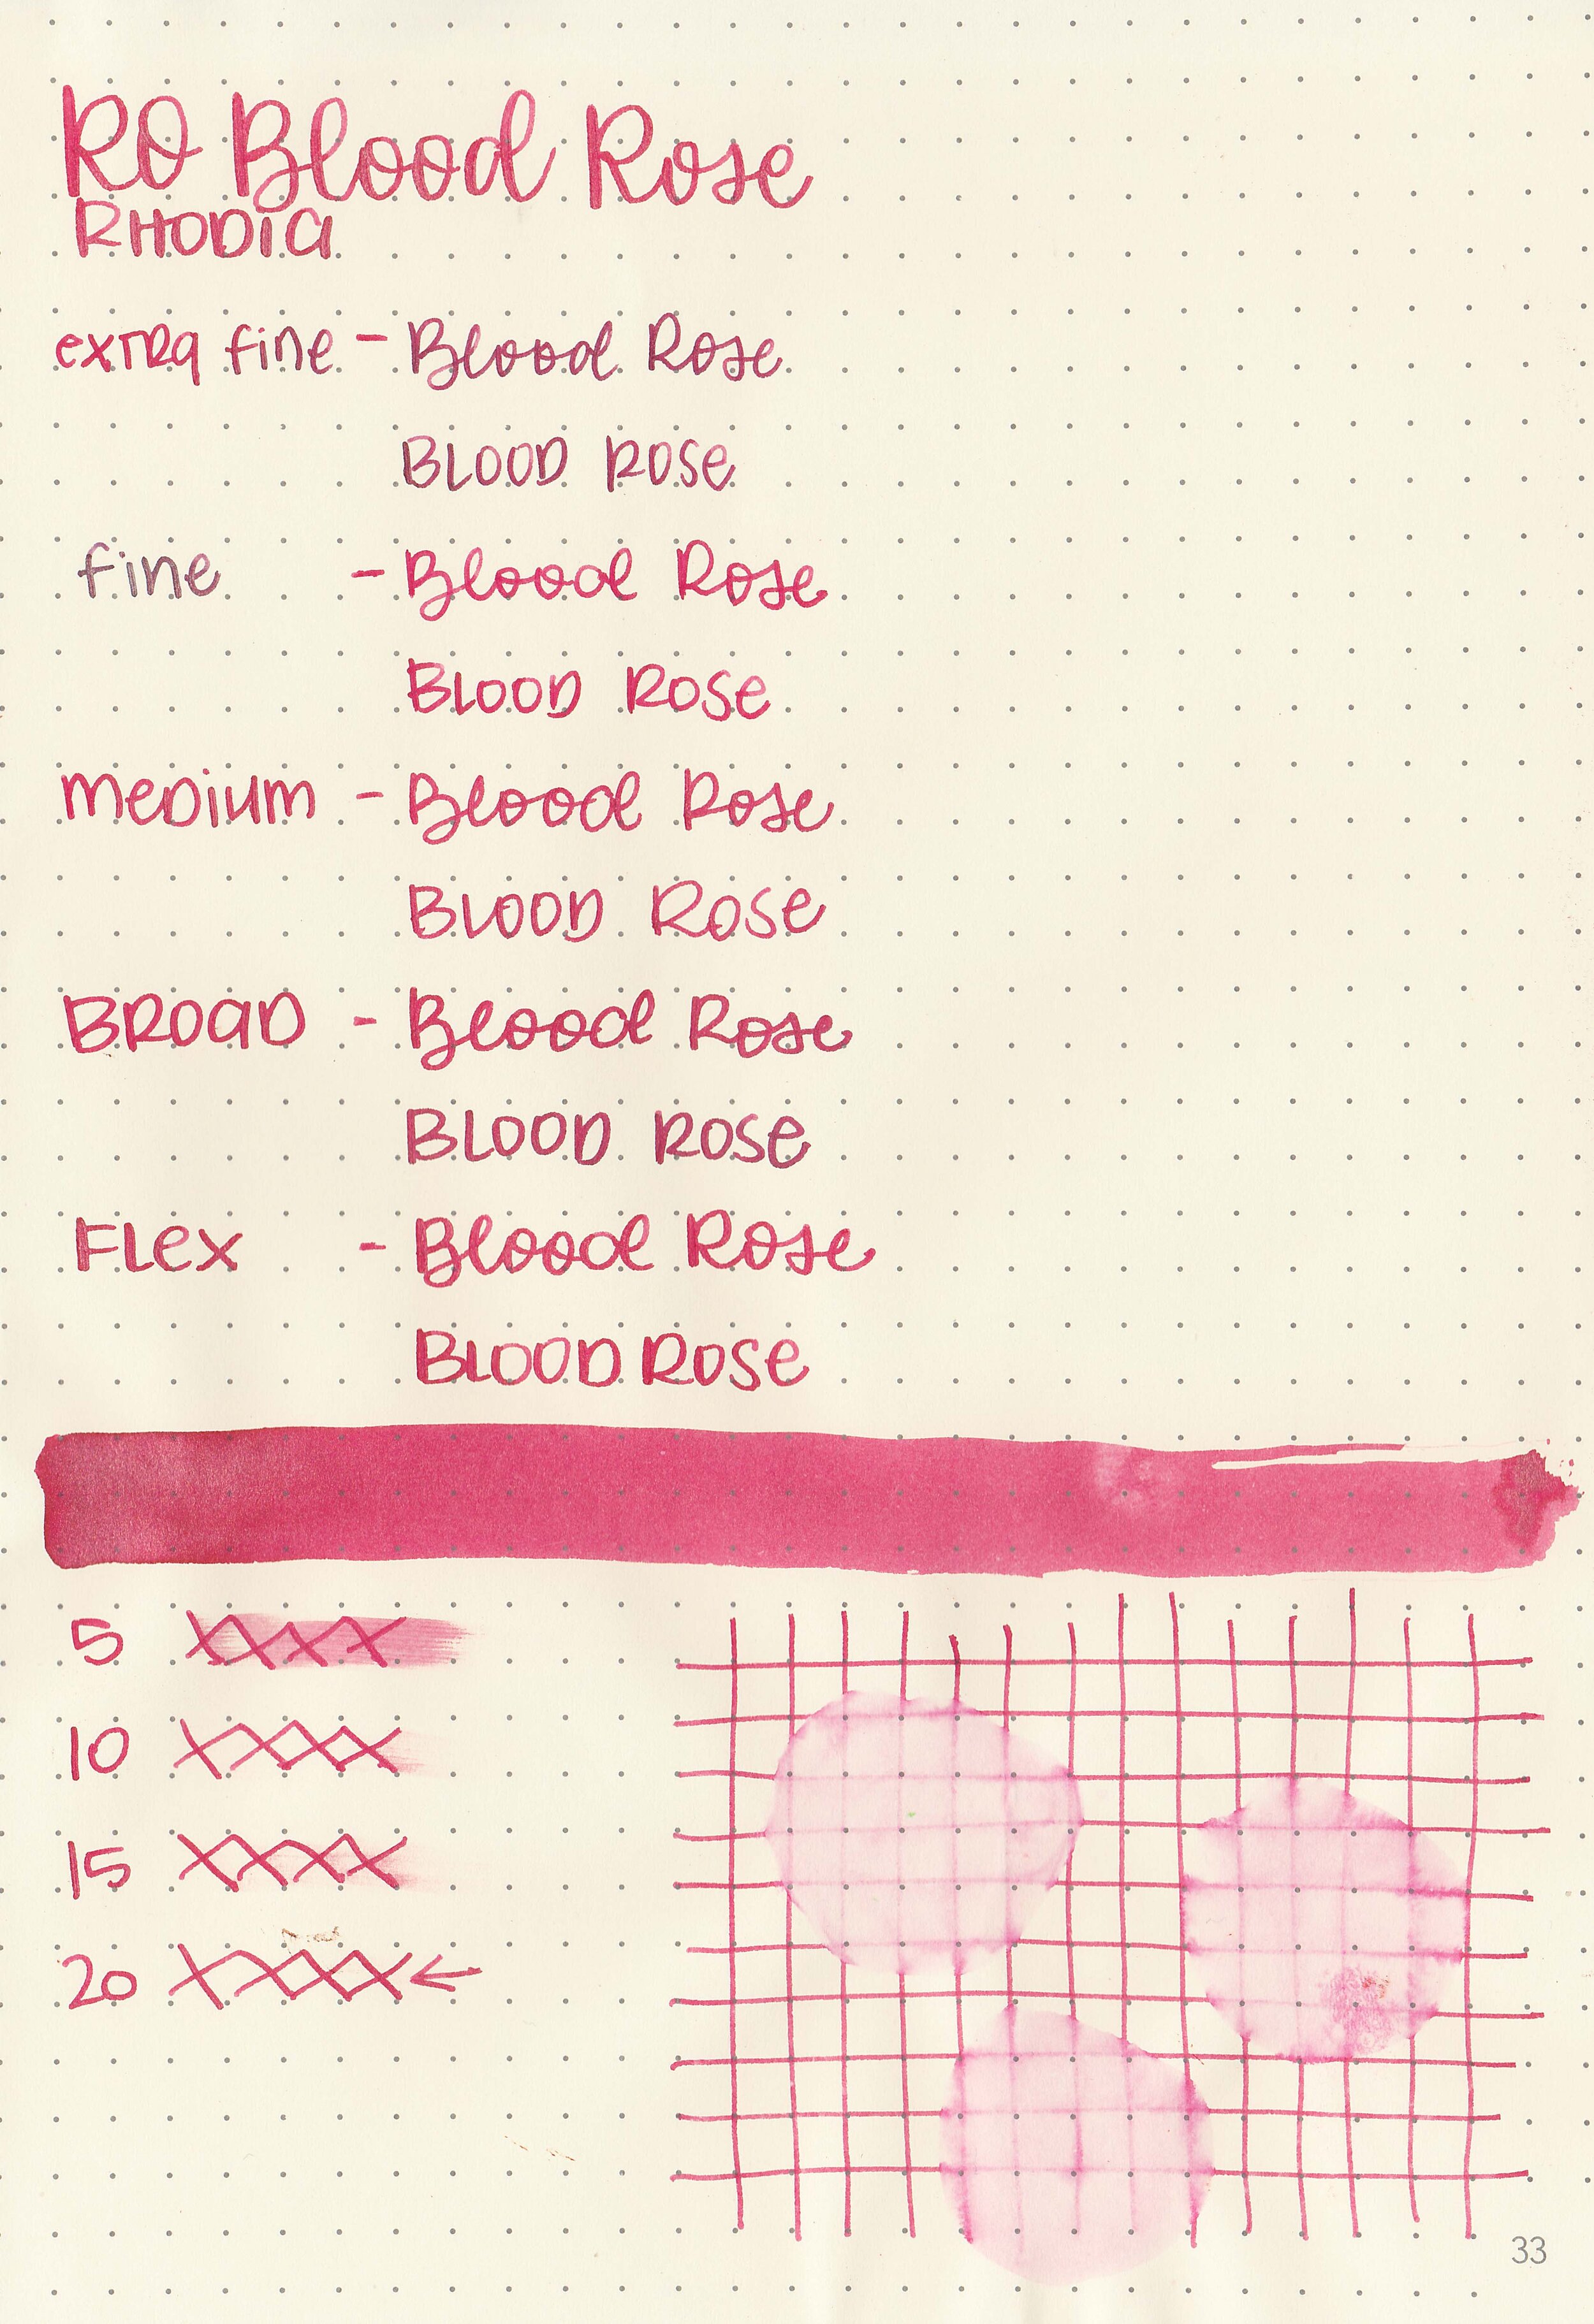 RO Blood Rose
RHODIA
extra fine - Blood Rose
BLOOD ROSE
fine - Blood Rose
BLOOD ROSE
MEDIUM - Blood Rose
BLOOD ROSE
BROAD - Blood Rose
BLOOD ROSE
FLEX - Blood Rose
BLOOD ROSE
5 XXXX
10 XXXX
15 XXXX
20 XXXX ←
33